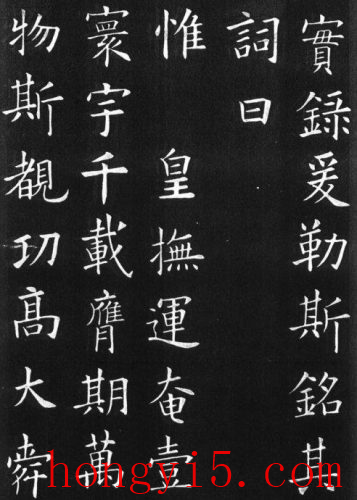 實録爰勒斯銘其
詞曰
惟皇撫運奄壹
寰宇千載膺期萬
物斯覩功高大舜
hongyi5.com